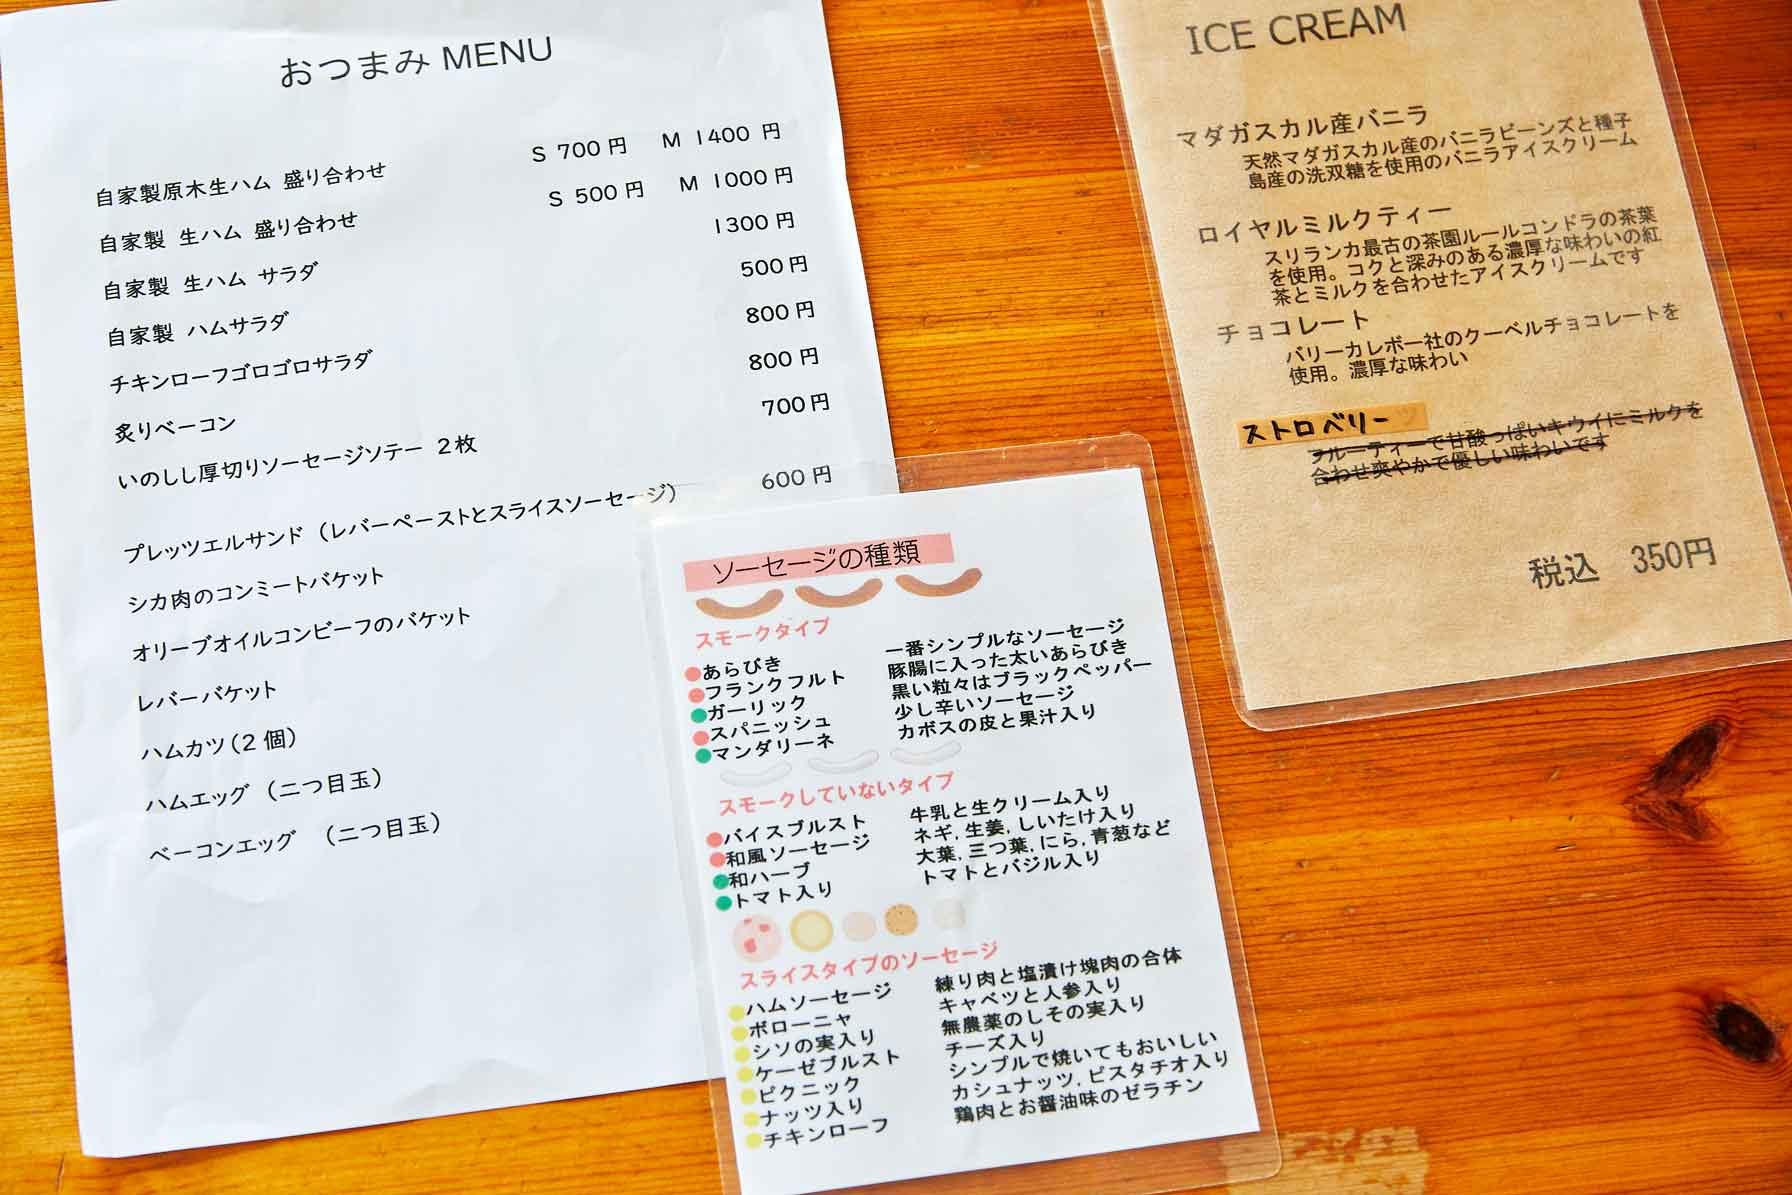 おつまみ MENU
自家製原木生ハム 盛り合わせ S 700円 M 1400 円
自家製 生ハム 盛り合わせ S 500円 M 1000円
自家製 生ハム サラダ 1300円
自家製 ハムサラダ 500円
チキンローフゴロゴロサラダ 800円
炙りベーコン 800円
いのしし厚切りソーセージソテー 2枚 700円
プレッツエルサンド (レバーペーストとスライスソーセージ) 600円
シカ肉のコンミートバケット
オリーブオイルコンビーフのバケット
レバーバケット
ハムカツ(2個)
ハムエッグ (二つ目玉)
ベーコンエッグ (二つ目玉)
ソーセージの種類
スモークタイプ
あらびき 一番シンプルなソーセージ
フランクフルト 豚腸に入った太いあらびき
ガーリック 黒い粒々はブラックペッパー
スパニッシュ 少し辛いソーセージ
マンダリーネ カボスの皮と果汁入り
スモークしていないタイプ
バイスブルスト 牛乳と生クリーム入り
和風ソーセージ ネギ,生姜,しいたけ入り
和ハーブ 大葉,三つ葉,にら,青葱など
トマト入り トマトとバジル入り
スライスタイプのソーセージ
ハムソーセージ 練り肉と塩漬け塊肉の合体
ボローニャ キャベツと人参入り
シソの実入り 無農薬のしその実入り
ケーゼブルスト チーズ入り
ピクニック シンプルで焼いてもおいしい
ナッツ入り カシュナッツ,ピスタチオ入り
チキンローフ 鶏肉とお醤油味のゼラチン
ICE CREAM
マダガスカル産バニラ
天然マダガスカル産のバニラビーンズと種子
島産の洗双糖を使用のバニラアイスクリーム
ロイヤルミルクティー
スリランカ最古の茶園ルールコンドラの茶葉
を使用。コクと深みのある濃厚な味わいの紅
茶とミルクを合わせたアイスクリームです
チョコレート
バリーカレボー社のクーベルチョコレートを
使用。濃厚な味わい
ストロベリー
フルーティーで甘酸っぱいキウイにミルクを
合わせ爽やかで優しい味わいです
税込 350円